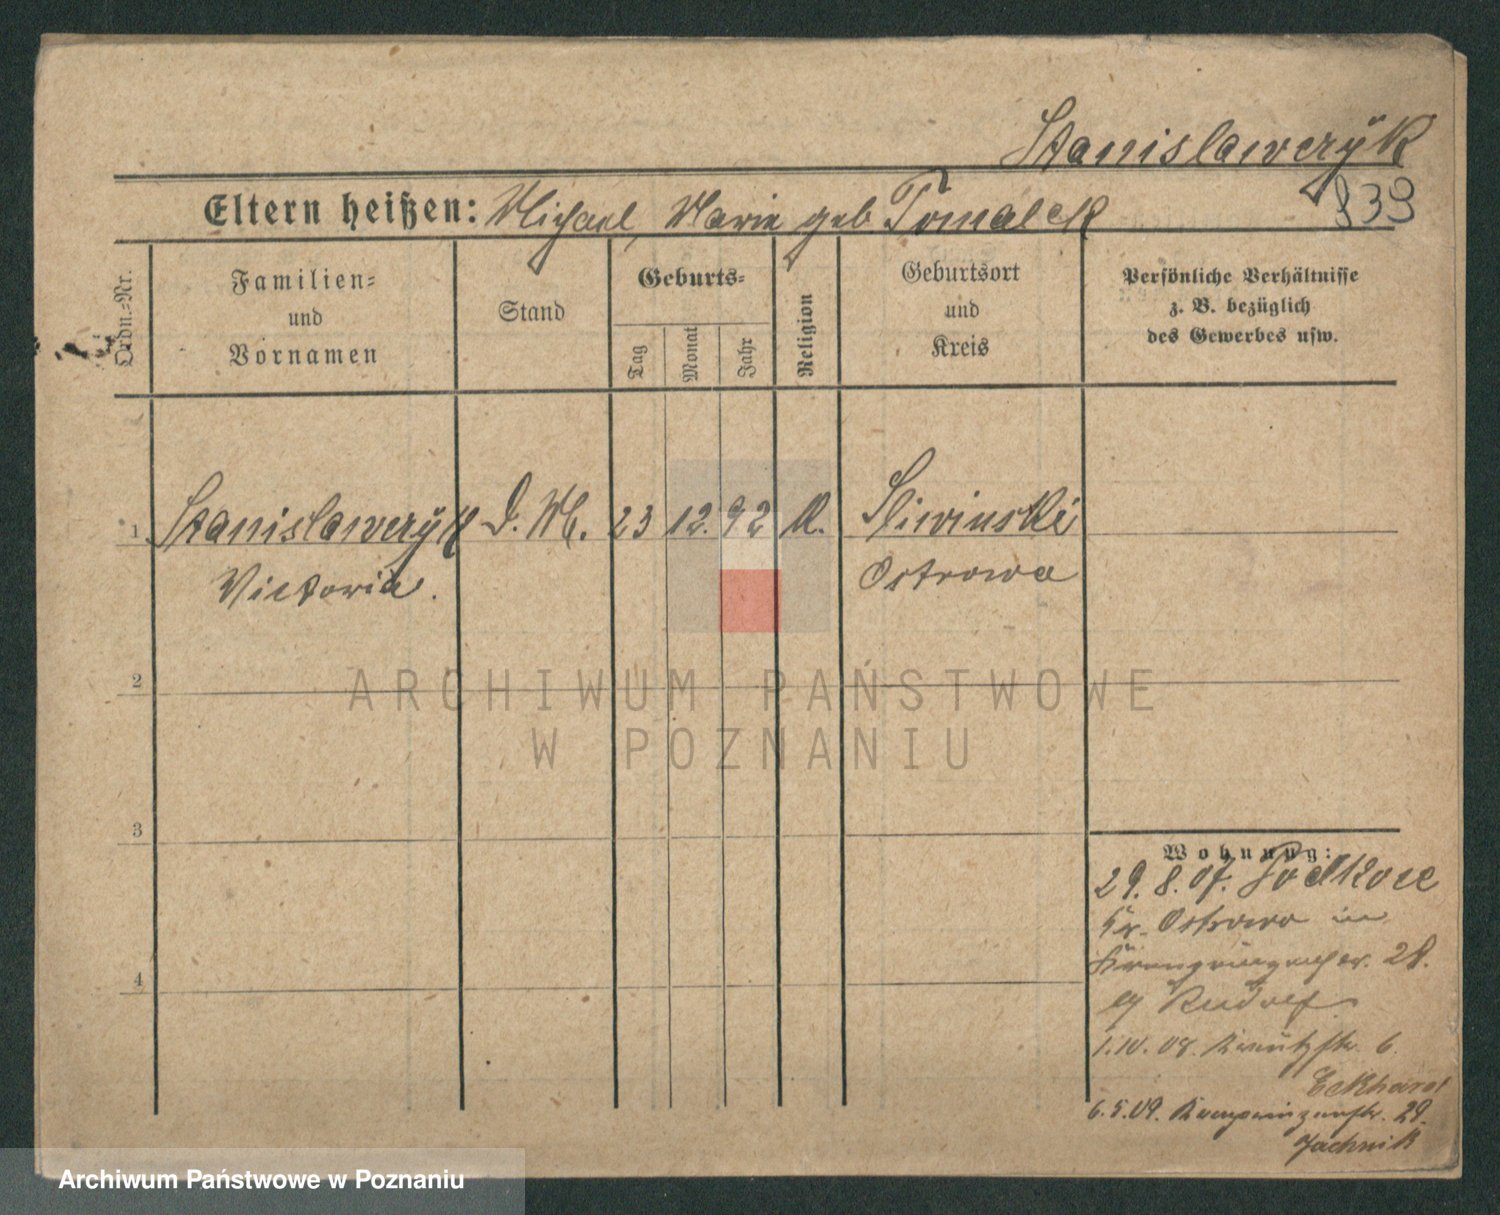 Stanislawczÿk
839
Eltern heißen: Michael, Marie geb. Tomalek
Ordn.-Nr.
Familien=
und
Vornamen
Stand
Geburts=
Tag
Monat
Jahr
Religion
Geburtsort
und
Kreis
Persönliche Verhältnisse
z. B. bezüglich
des Gewerbes usw.
1 Stanislawczÿk D. M. 23 12. 92 K. Sliwinski
Victoria. Ostrowo
2
ARCHIWUM PAŃSTWOWE
W POZNANIU
3
4
Wohnung:
29. 8. 07.
Kr. Ostrowo in
Kronprinzenstr. 28.
Rudolf
1. 10. 08. 6.
Eckhardt
6. 5. 09. Kronprinzenstr. 29.
Jachnik
Archiwum Państwowe w Poznaniu